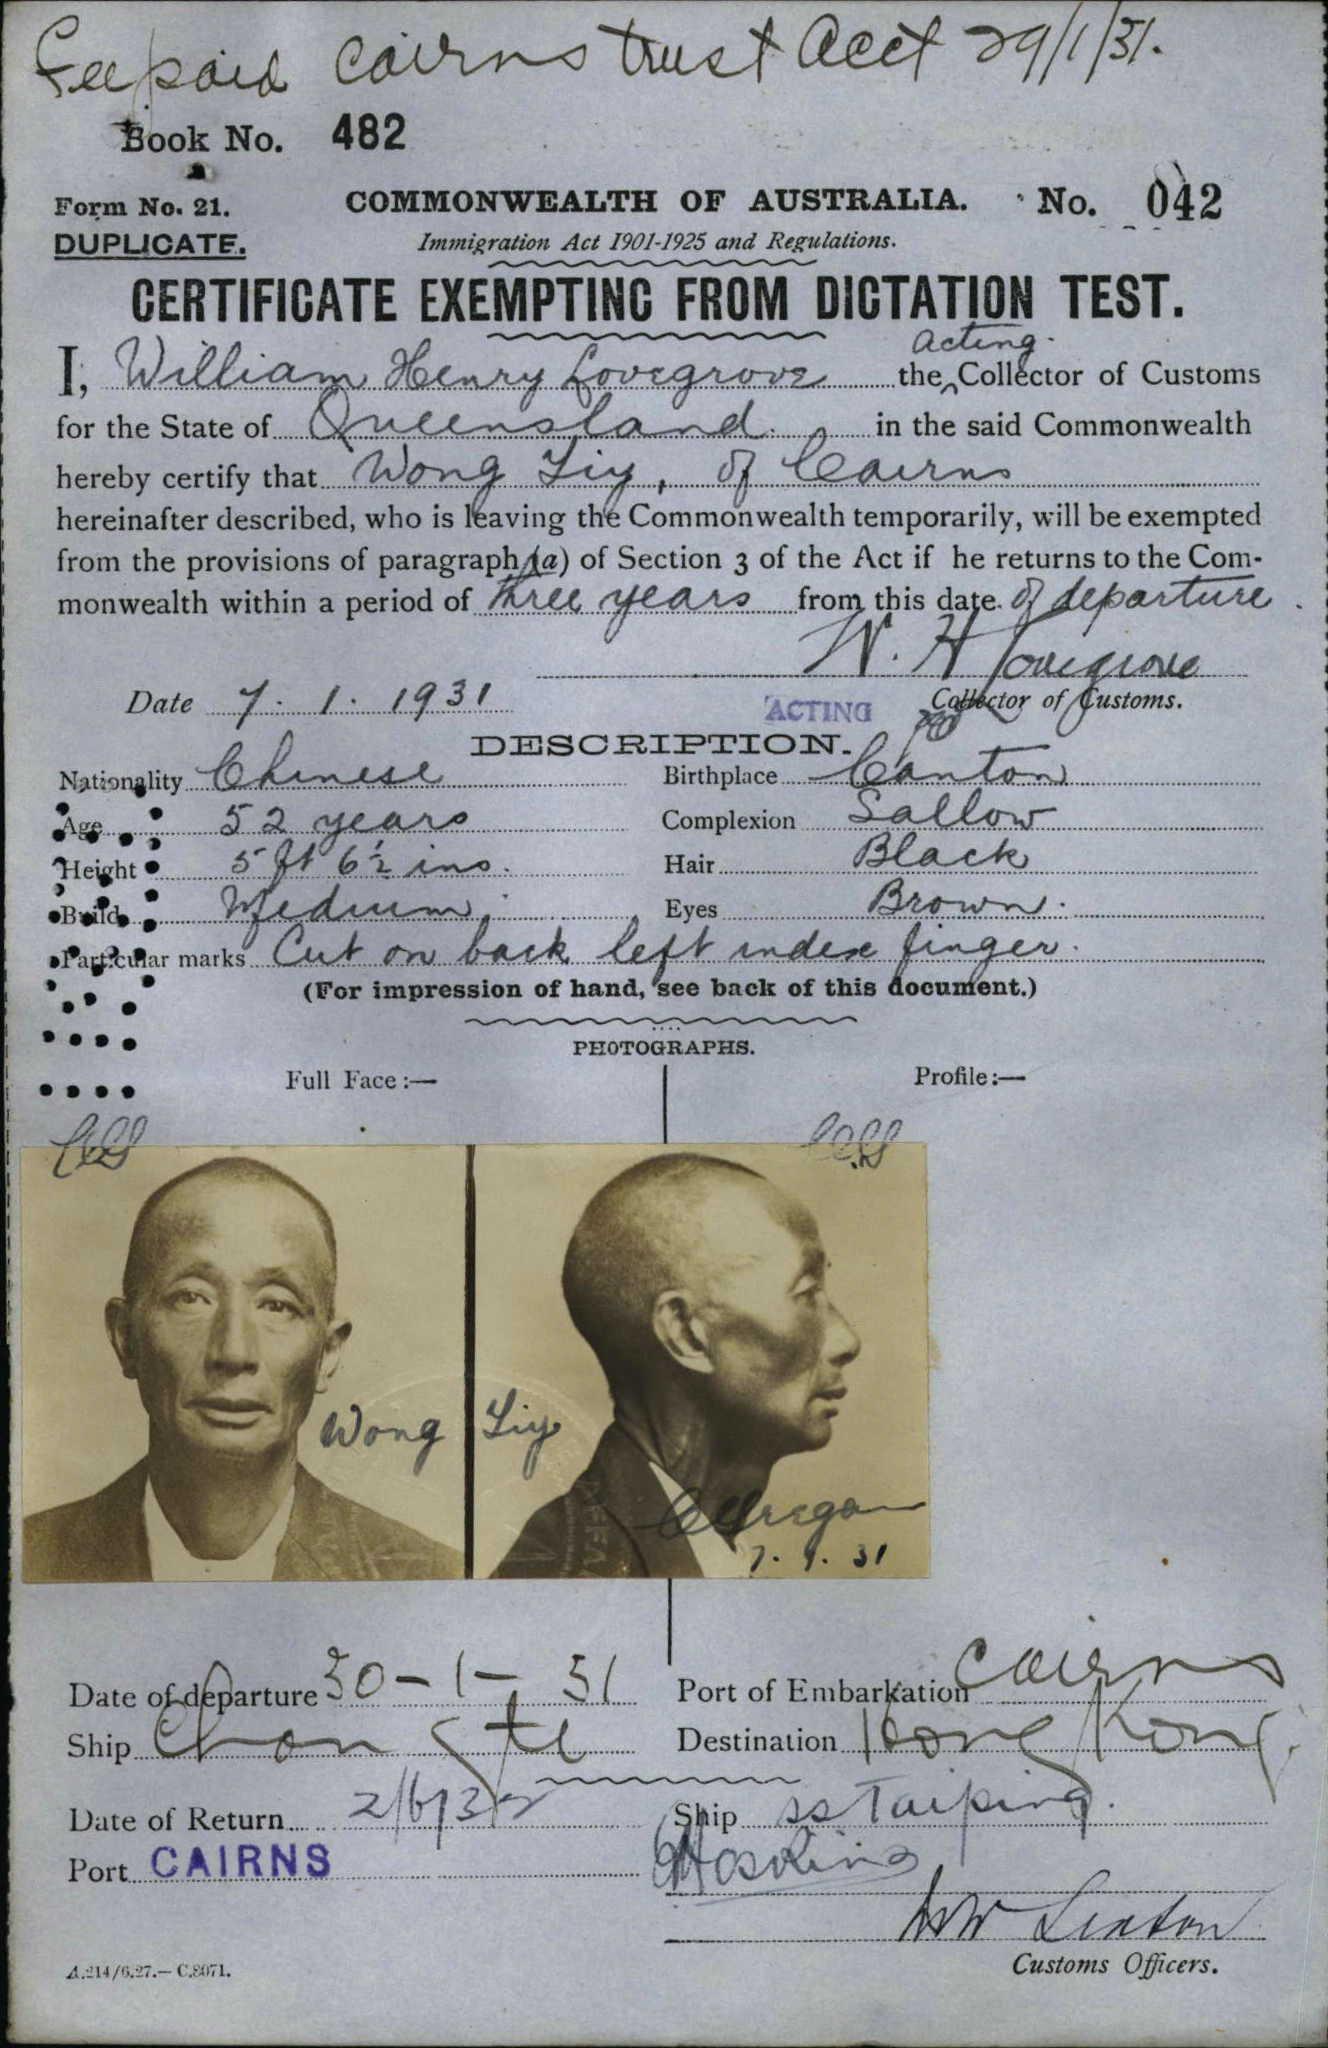 Fee paid Cairns trust Acct 29/1/31.
Book No. 482
Form No. 21. COMMONWEALTH OF AUSTRALIA. No. 042
DUPLICATE. Immigration Act 1901-1925 and Regulations.
CERTIFICATE EXEMPTING FROM DICTATION TEST.
acting
I, William Henry Lovegrove the Collector of Customs
for the State of Queensland in the said Commonwealth
hereby certify that Wong Liy, of Cairns
hereinafter described, who is leaving the Commonwealth temporarily, will be exempted
from the provisions of paragraph (a) of Section 3 of the Act if he returns to the Com-
monwealth within a period of three years from this date of departure.
W. H Lovegrove
Date 7. 1. 1931 ACTING Collector of Customs.
DESCRIPTION.
Nationality Chinese Birthplace Canton
Age 52 years Complexion Sallow
Height 5 ft 6½ ins. Hair Black
Build Medium Eyes Brown.
Particular marks Cut on back left index finger.
(For impression of hand, see back of this document.)
PHOTOGRAPHS.
Full Face:— Profile:—
Wong Liy
7. 1. 31
Date of departure 30-1-31 Port of Embarkation Cairns
Ship Changte Destination Hong Kong.
Date of Return 2/6/32 Ship ss Taiping.
Port CAIRNS
Customs Officers.
A.214/6.27.—C.8071.